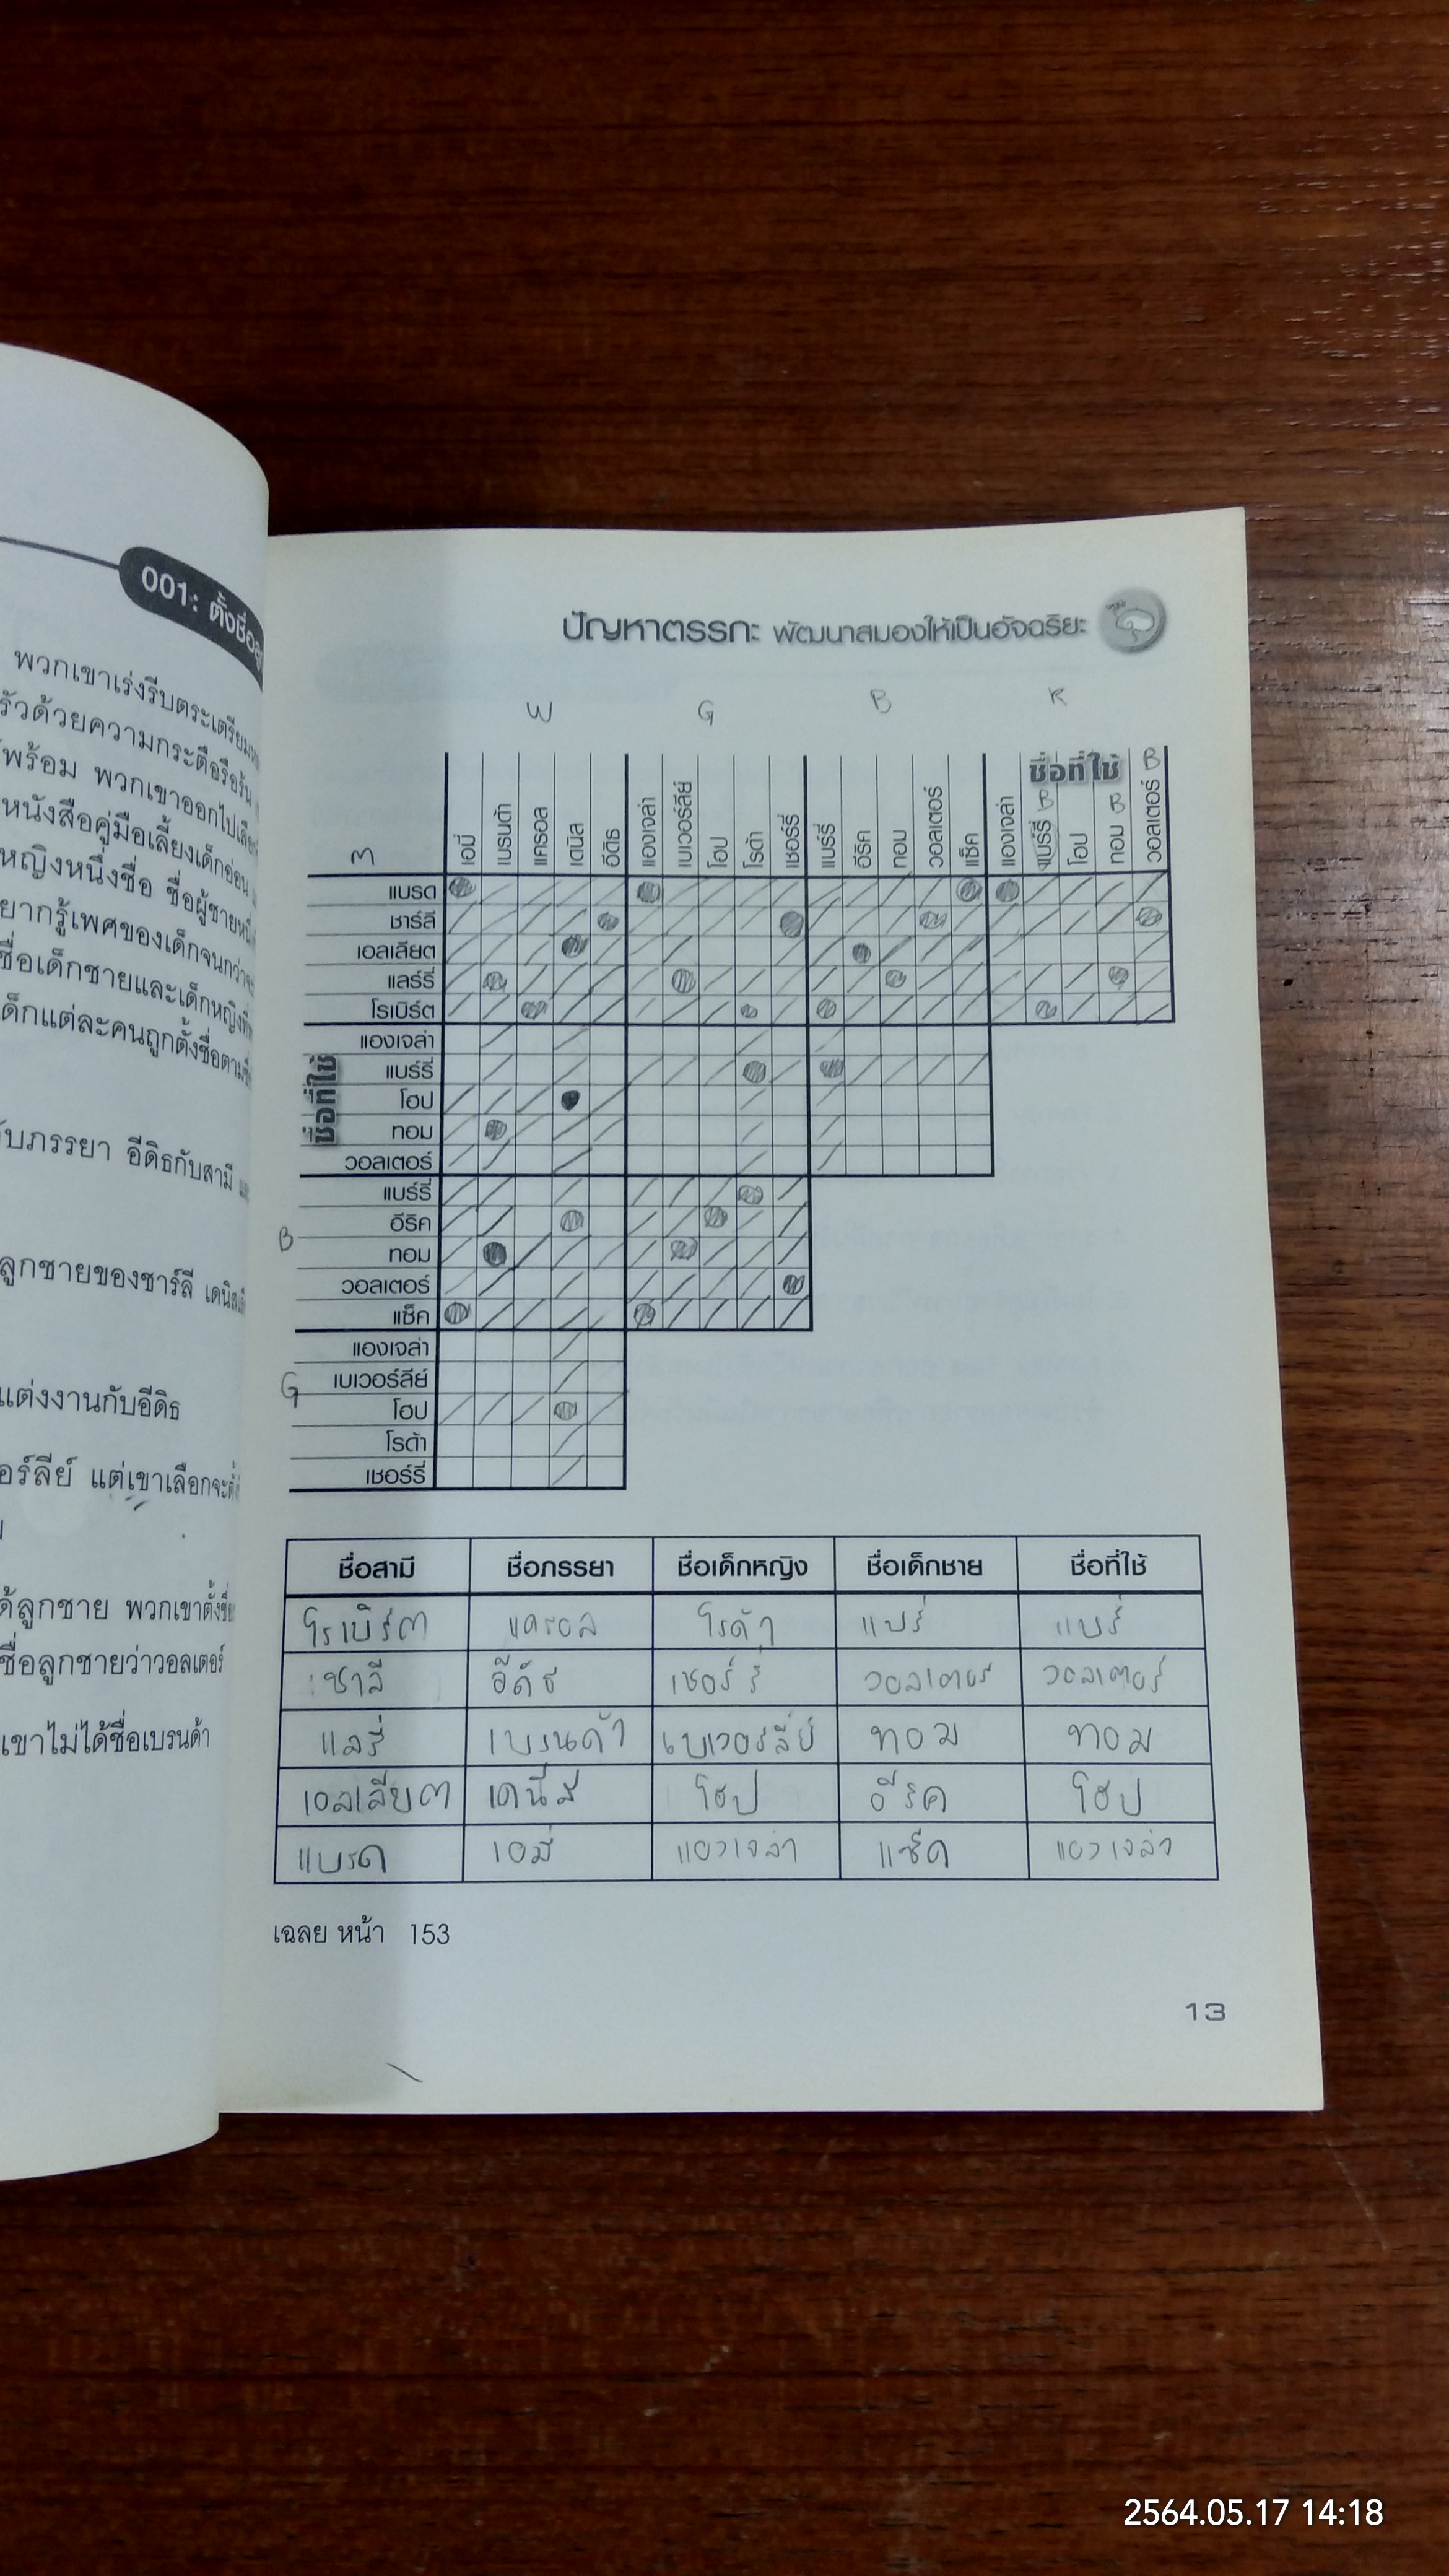 001: ตั้งชื่อ
พวกเขาเร่งรีบตระเตรียม
รัวด้วยความกระตือรือร้น
พร้อม พวกเขาออกไปเลือก
หนังสือคู่มือเลี้ยงเด็กอ่อน
หญิงหนึ่งชื่อ ชื่อผู้ชายหนึ่ง
ยากรู้เพศของเด็กจนกว่าจะ
ชื่อเด็กชายและเด็กหญิงที่
ด็กแต่ละคนถูกตั้งชื่อตาม
ับภรรยา อีดิธกับสามี
ลูกชายของชาร์ลี เดนิส
แต่งงานกับอีดิธ
อร์ลีย์ แต่เขาเลือกจะตั้ง
ด้ลูกชาย พวกเขาตั้งชื่อ
ชื่อลูกชายว่าวอลเตอร์
เขาไม่ได้ชื่อเบรนด้า
ปัญหาตรรกะ พัฒนาสมองให้เป็นอัจฉริยะ
W G B R
ชื่อที่ใช้
M เอมี่ เบรนด้า แครอล เดนิส อีดิธ แองเจล่า เบเวอร์ลีย์ โฮป โรด้า เชอร์รี่ แบร์รี่ อีริค ทอม วอลเตอร์ แช็ค แองเจล่า แบร์รี่ B โฮป ทอม B วอลเตอร์ B
แบรด
ชาร์ลี
เอลเลียต
แลร์รี่
โรเบิร์ต
ชื่อที่ใช้
แองเจล่า
แบร์รี่
โฮป
ทอม
วอลเตอร์
B
แบร์รี่
อีริค
ทอม
วอลเตอร์
แช็ค
G
แองเจล่า
เบเวอร์ลีย์
โฮป
โรด้า
เชอร์รี่
ชื่อสามี ชื่อภรรยา ชื่อเด็กหญิง ชื่อเด็กชาย ชื่อที่ใช้
โรเบิร์ต แครอล โรด้า แบร์รี่ แบร์รี่
ชาลี อีดิธ เชอร์รี่ วอลเตอร์ วอลเตอร์
แลรี่ เบรนด้า เบเวอร์ลีย์ ทอม ทอม
เอลเลียต เดนีส โฮป อีริค โฮป
แบรด เอมี่ แองเจล่า แช็ค แองเจล่า
เฉลย หน้า 153
13
2564.05.17 14:18